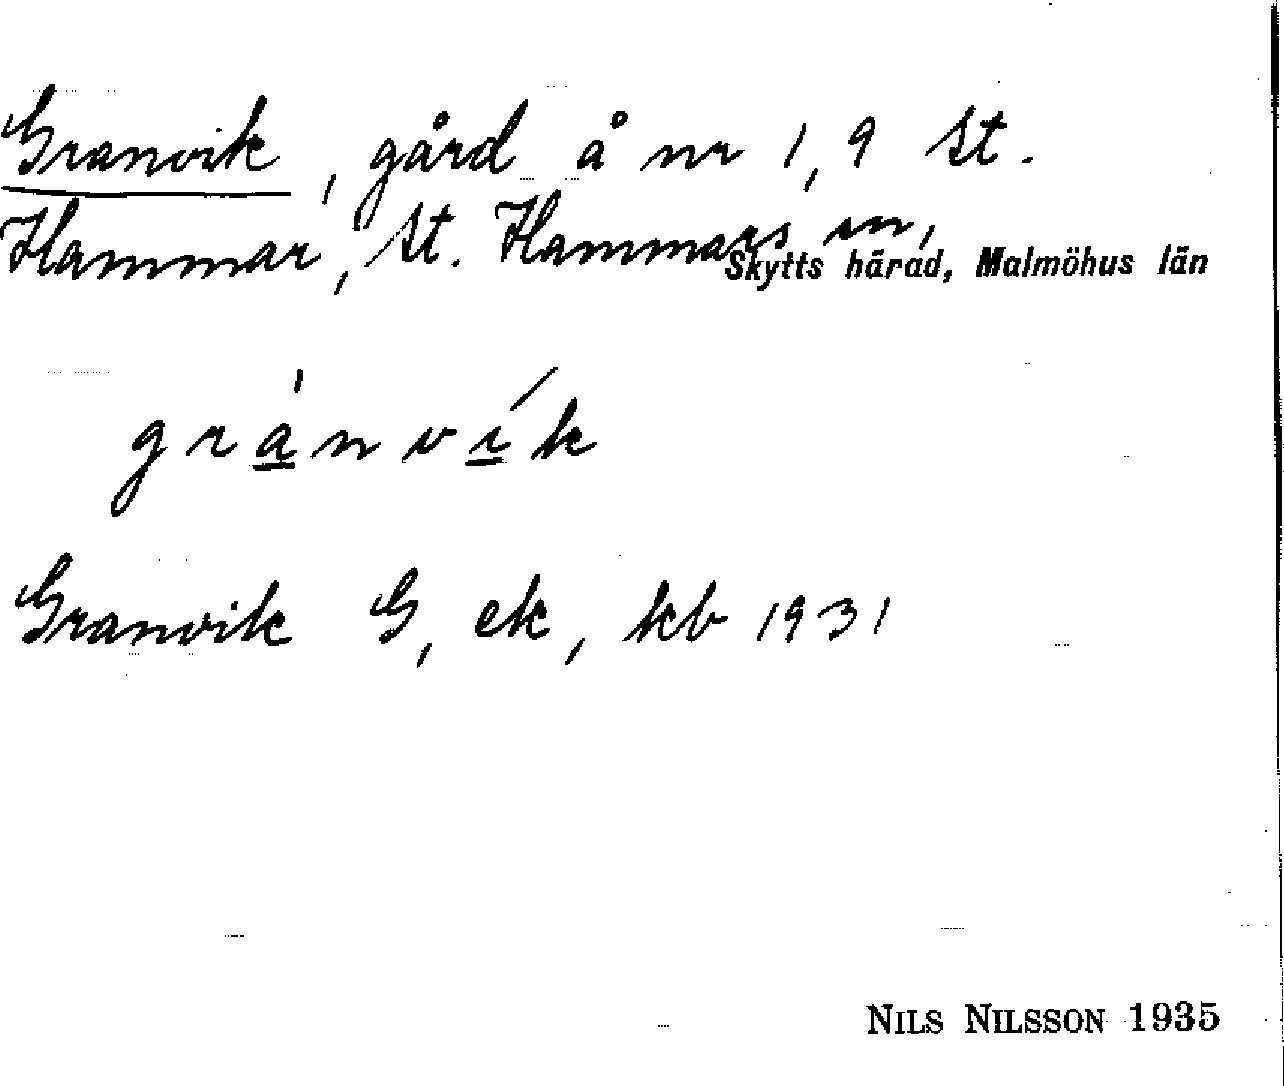 Granvik, gård å nr 1, 9 St.
Hammar, St. Hammars sn,
Skytts härad, Malmöhus län
gra̲̍nví̲k
Granvik G, ek, kb 1931
NILS NILSSON 1935